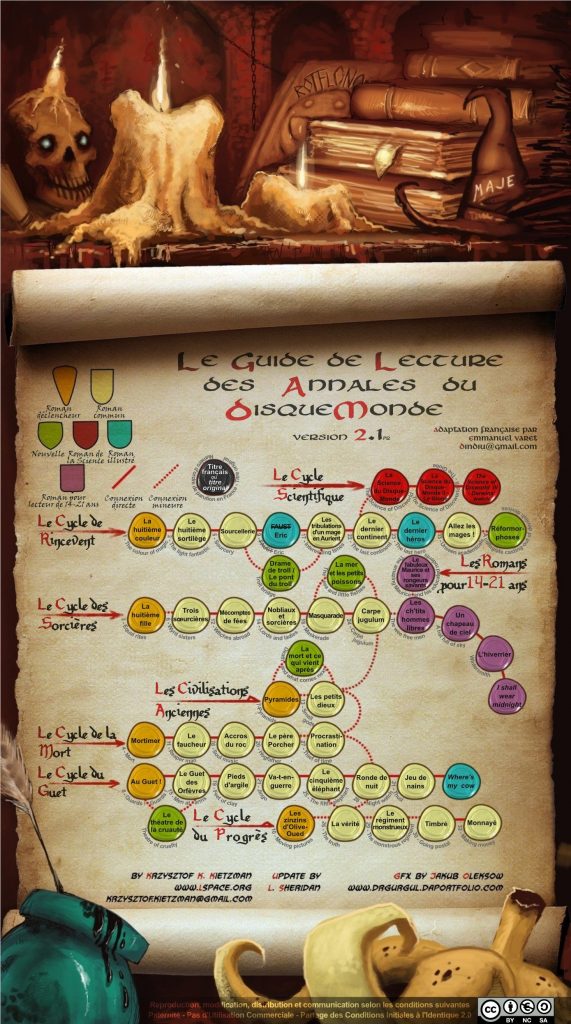 MAJE
Le Guide de Lecture
des Annales du
DisqueMonde
version 2.1
Adaptation française par
Emmuel Varet
Roman
déclencheur
Roman
commun
Nouvelle
Roman de
la Science
Roman
illustré
Roman pour
lecteur de 14-21 ans
Connexion
directe
Connexion
mineure
Titre
français
ou titre
original
Le Cycle
Scientifique
La
Science
du Disque-
Monde
La
Science
du Disque-
Monde II
Le Cycle de
Rincevent
La
huitième
couleur
Le
huitième
sortilège
Sourcellerie
FAUST
Eric
Les
tribulations
d'un mage en
Aurient
Le
dernier
continent
Le
dernier
héros
Allez les
mages !
Réformor-
phoses
Drame
de troll /
Le pont
du troll
La mer
et les petits
poissons
Le
fabuleux
Maurice et ses
rongeurs
savants
Les Romans
pour 14-21 ans
Le Cycle des
Sorcières
La
huitième
fille
Trois
sœurcières
Mécomptes
de fées
Nobliaux
et
sorcières
Masquarade
Carpe
jugulum
Les
ch'tits
hommes
libres
Un
chapeau
de ciel
L'hiverrier
I shall
wear
midnight
La
mort et ce
qui vient
après
Les Civilisations
Anciennes
Pyramides
Les petits
dieux
Le Cycle de la
Mort
Mortimer
Le
faucheur
Accros
du roc
Le père
Porcher
Procrasti-
nation
Le Cycle du
Guet
Au Guet !
Le Guet
des
Orfèvres
Pieds
d'argile
Va-t-en-
guerre
Le
cinquième
éléphant
Ronde de
nuit
Jeu de
nains
Where's
my cow
Le
théâtre de
la cruauté
Le Cycle
du Progrès
Les
zinzins
d'Olive-
Oued
La vérité
Le
régiment
monstrueux
Timbré
Monnayé
by Krzysztof K. Kietzman
www.lspace.org
krzysztof.kietzman@gmail.com
Update by
L. Sheridan
GFX by Jakub Oleksow
www.drgurgul.daportfolio.com
Reproduction, modification, distribution et communication selon les conditions suivantes
Paternité - Pas d'Utilisation Commerciale - Partage des Conditions Initiales à l'Identique 2.0
cc
BY NC SA